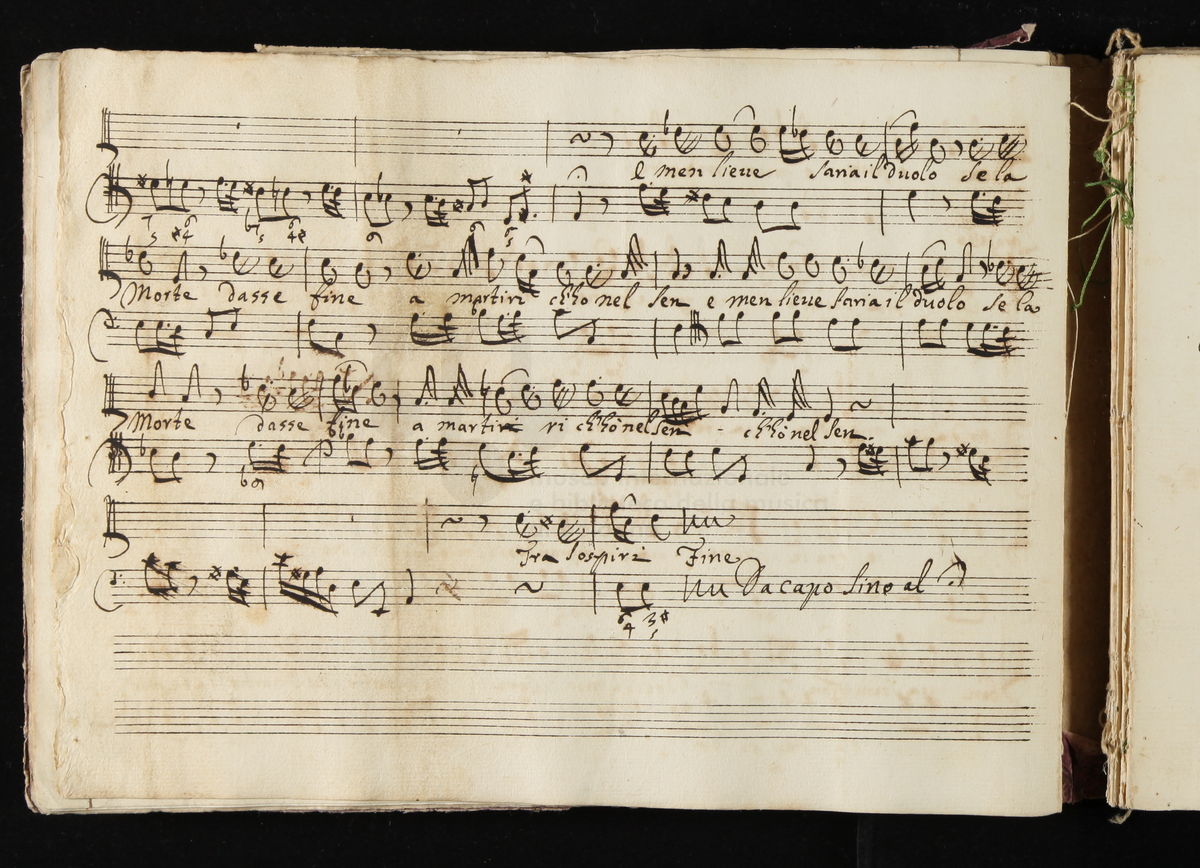 E men lieue saria il duolo se la
Morte dasse fine a martiri ch'ho nel sen e men lieue saria il duolo se la
Morte dasse fine a martiri ri ch'hò nel sen - ch'hò nel sen
Fra sospiri Fine
Da capo sino al